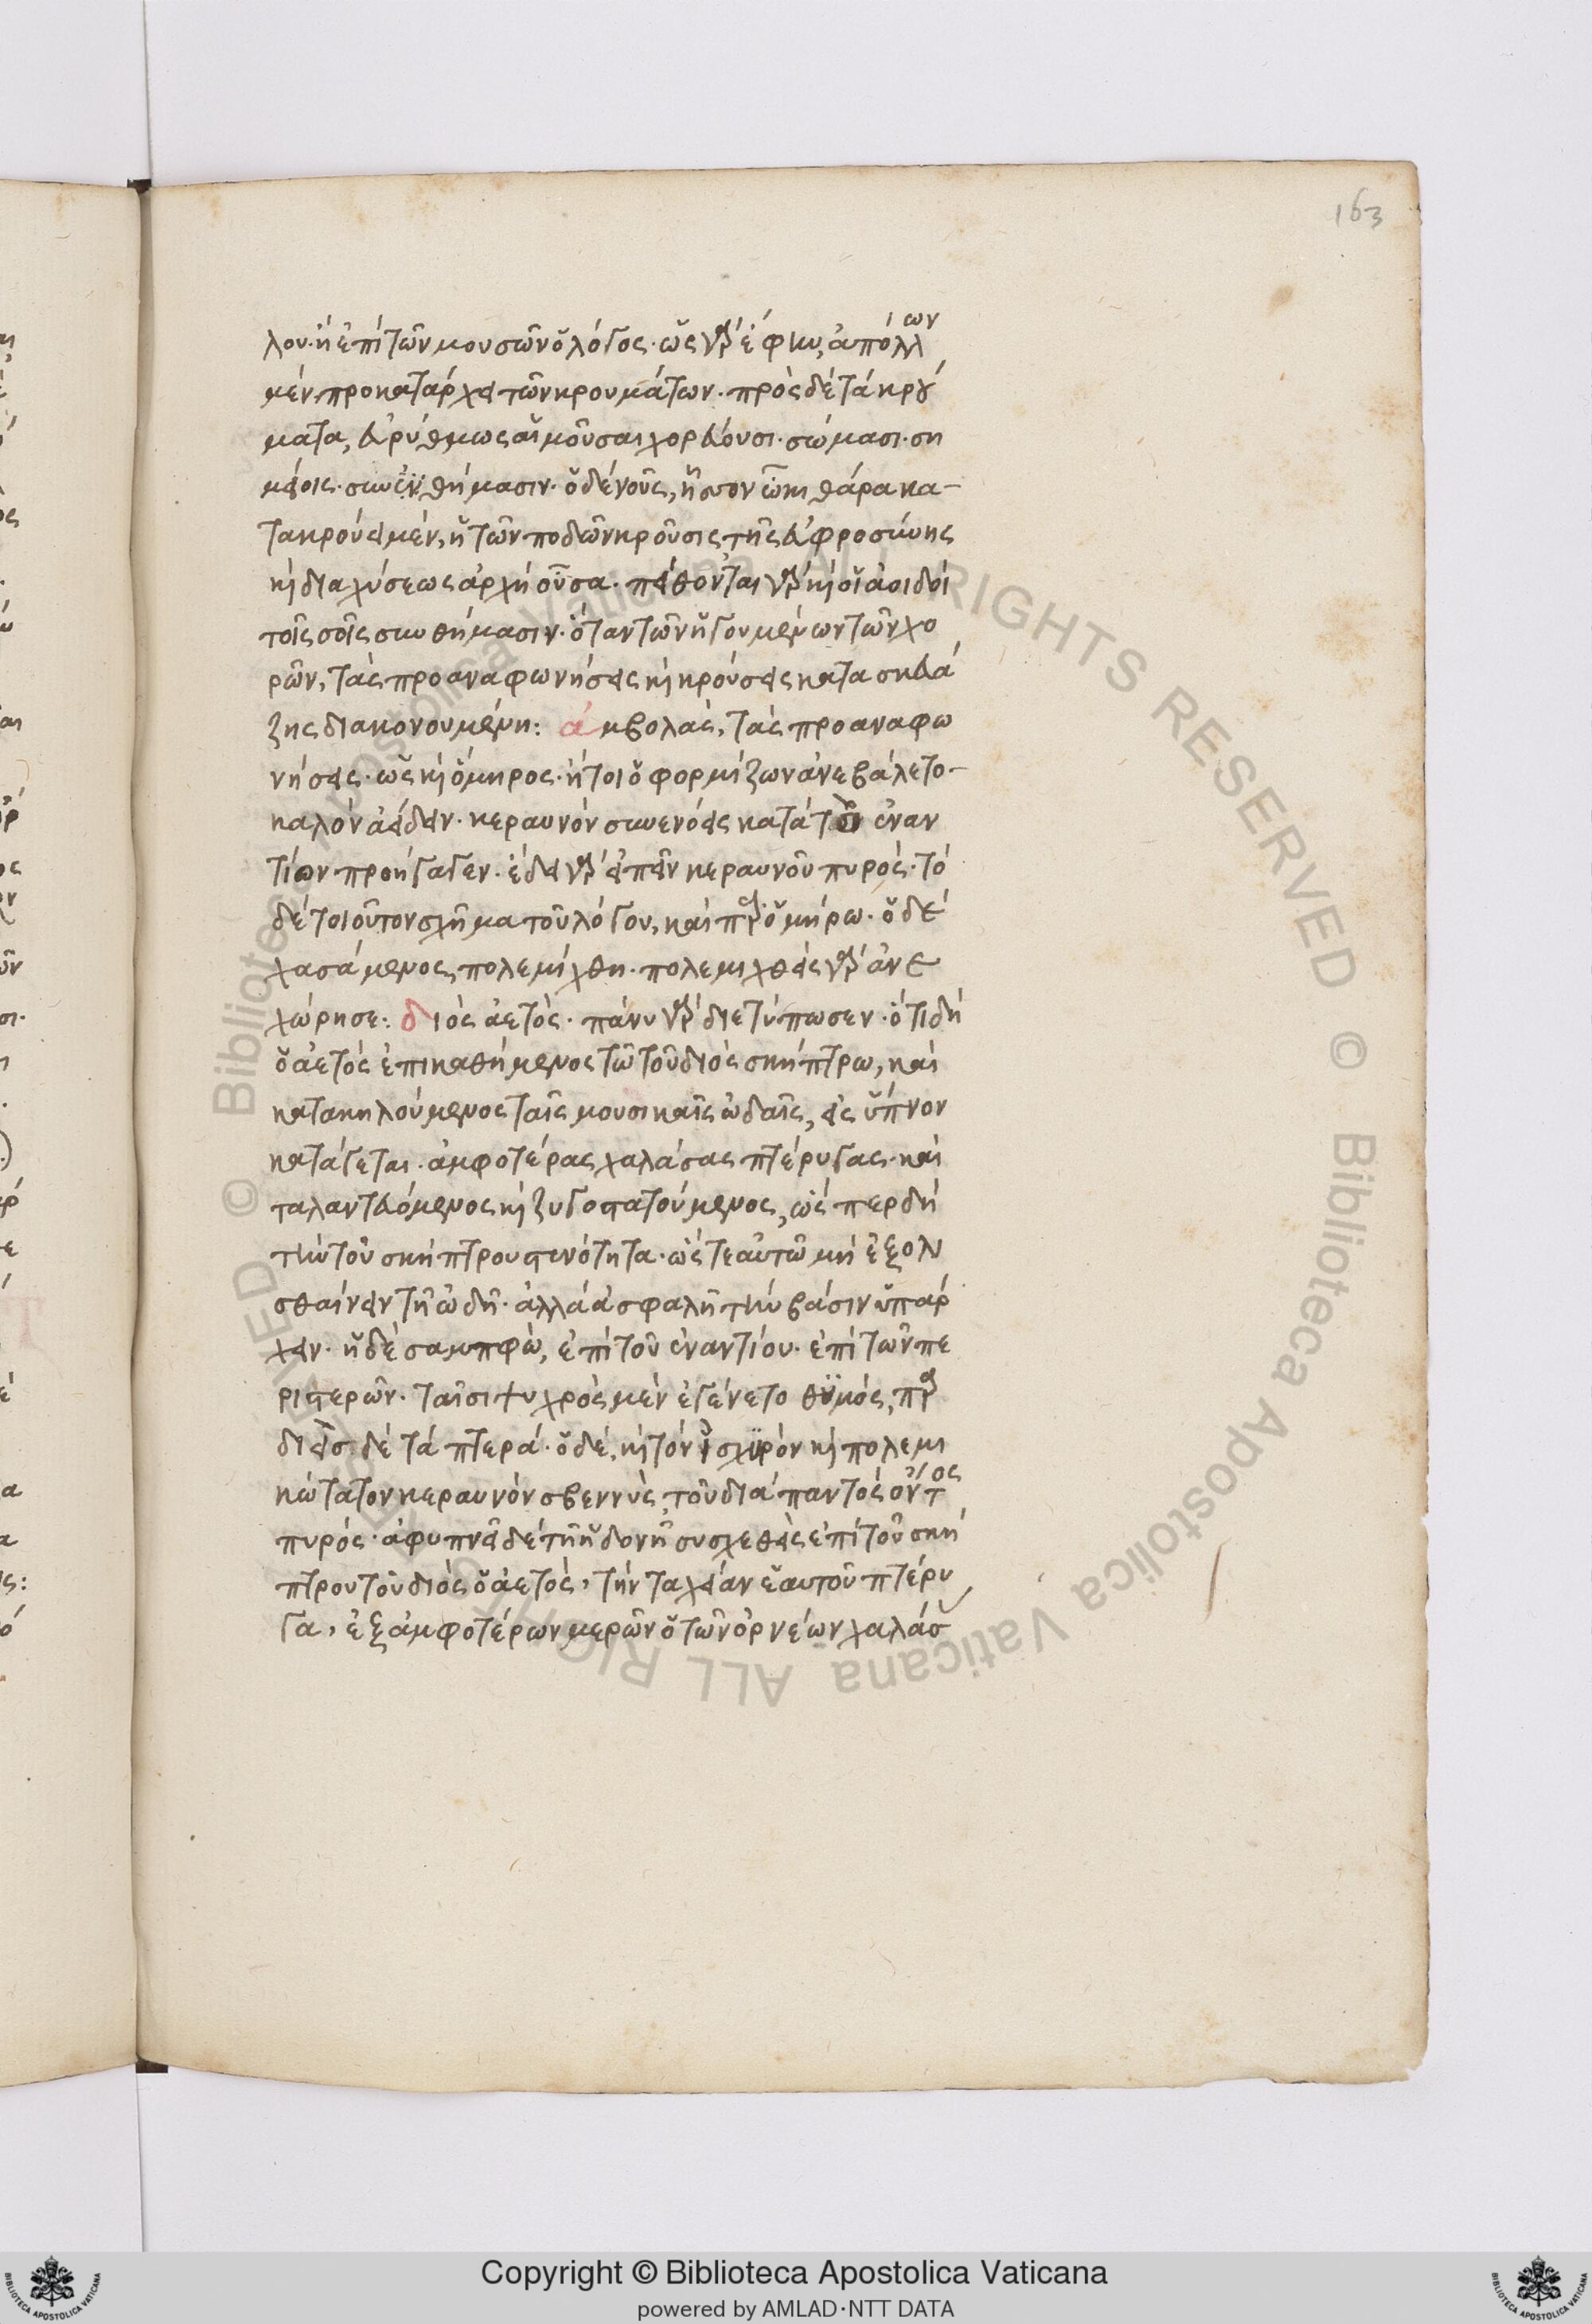 163
λον· ἢ ἐπὶ τῶν μουσῶν ὁ λόγος· ὡς γὰρ ἔφην, ἀπόλλων
μὲν προκατάρχει τῶν κρουμάτων· πρὸς δὲ τὰ κρού
ματα, εὐρύθμως αἱ μοῦσαι χορεύουσι· σώμασι· ση
μείοις· συνθήμασιν· ὁ δὲ νοῦς, ἧστινον κιθάρα κα-
τακρούει μὲν, ἡ τῶν ποδῶν κροῦσις τῆς εὐφροσύνης
καὶ διαχύσεως ἀρχὴ οὖσα· πείθονται γὰρ καὶ οἱ ἀοιδοὶ
τοῖς σοῖς συνθήμασιν· ὅταν τῶν ἡγουμένων τῶν χο
ρῶν, τὰς προαναφωνήσεις καὶ κρούσεις κατασκευά
ζης διακονουμένη: ἀμβολὰς, τὰς προαναφω
νήσεις· ὡς καὶ ὅμηρος· ἤτοι ὁ φορμίζων ἀνεβάλετο-
καλὸν ἀείδειν· κεραυνὸν σβεννύεις κατὰ τὸ ἐναν
τίον προήγαγεν· ἔδει γὰρ εἰπεῖν κεραυνοῦ πυρός· τὸ
δὲ τοιοῦτον σχῆμα τοῦ λόγου, καὶ παρ' ὁμήρω· ὁ δὲ
χασάμενος πολεμίχθη· πολεμιχθεὶς γὰρ ἀνε
χώρησε: διὸς ἀετὸς· πάνυ γὰρ διετύπωσεν· ὅτι δὴ
ὁ ἀετὸς ἐπικαθήμενος τῶ τοῦ διὸς σκήπτρω, καὶ
κατακηλούμενος ταῖς μουσικαῖς ὠδαῖς, εἰς ὕπνον
κατάγεται· ἀμφοτέρας χαλάσας πτέρυγας· καὶ
ταλαντευόμενος καὶ ζυγοστατούμενος, ὥσπερ δὴ
τὴν τοῦ σκήπτρου στενότητα· ὥστε αὐτῶ μὴ ἐξολι
σθαίνειν τῆ ὠδῆ· ἀλλὰ ἀσφαλῆ τὴν βάσιν ὑπάρ
χειν· ἡ δὲ σαμπφὼ, ἐπὶ τοῦ ἐναντίου· ἐπὶ τῶν πε
ριστερῶν· ταῖσι ψυχρὸς μὲν ἐγένετο θυμός, παρ
διεῖσι δὲ τὰ πτερά· ὁ δὲ, καὶ τὸν ἰσχυρὸν καὶ πολεμι
κώτατον κεραυνὸν σβεννὺς, τοῦ διὰ παντὸς ὄντος
πυρός· ἀφυπνεῖ δὲ τῆ ἡδονῆ συσχεθεὶς ἐπὶ τοῦ σκή
πτρου τοῦ διὸς ὁ ἀετὸς, τὴν ταχεῖαν ἑαυτοῦ πτέρυ
γα, ἐξ ἀμφοτέρων μερῶν ὁ τῶν ὀρνέων χαλάσ
© Biblioteca Apostolica Vaticana ALL RIGHTS RESERVED © Biblioteca Apostolica Vaticana ALL RIGHTS RESERVED
Copyright © Biblioteca Apostolica Vaticana
powered by AMLAD·NTT DATA